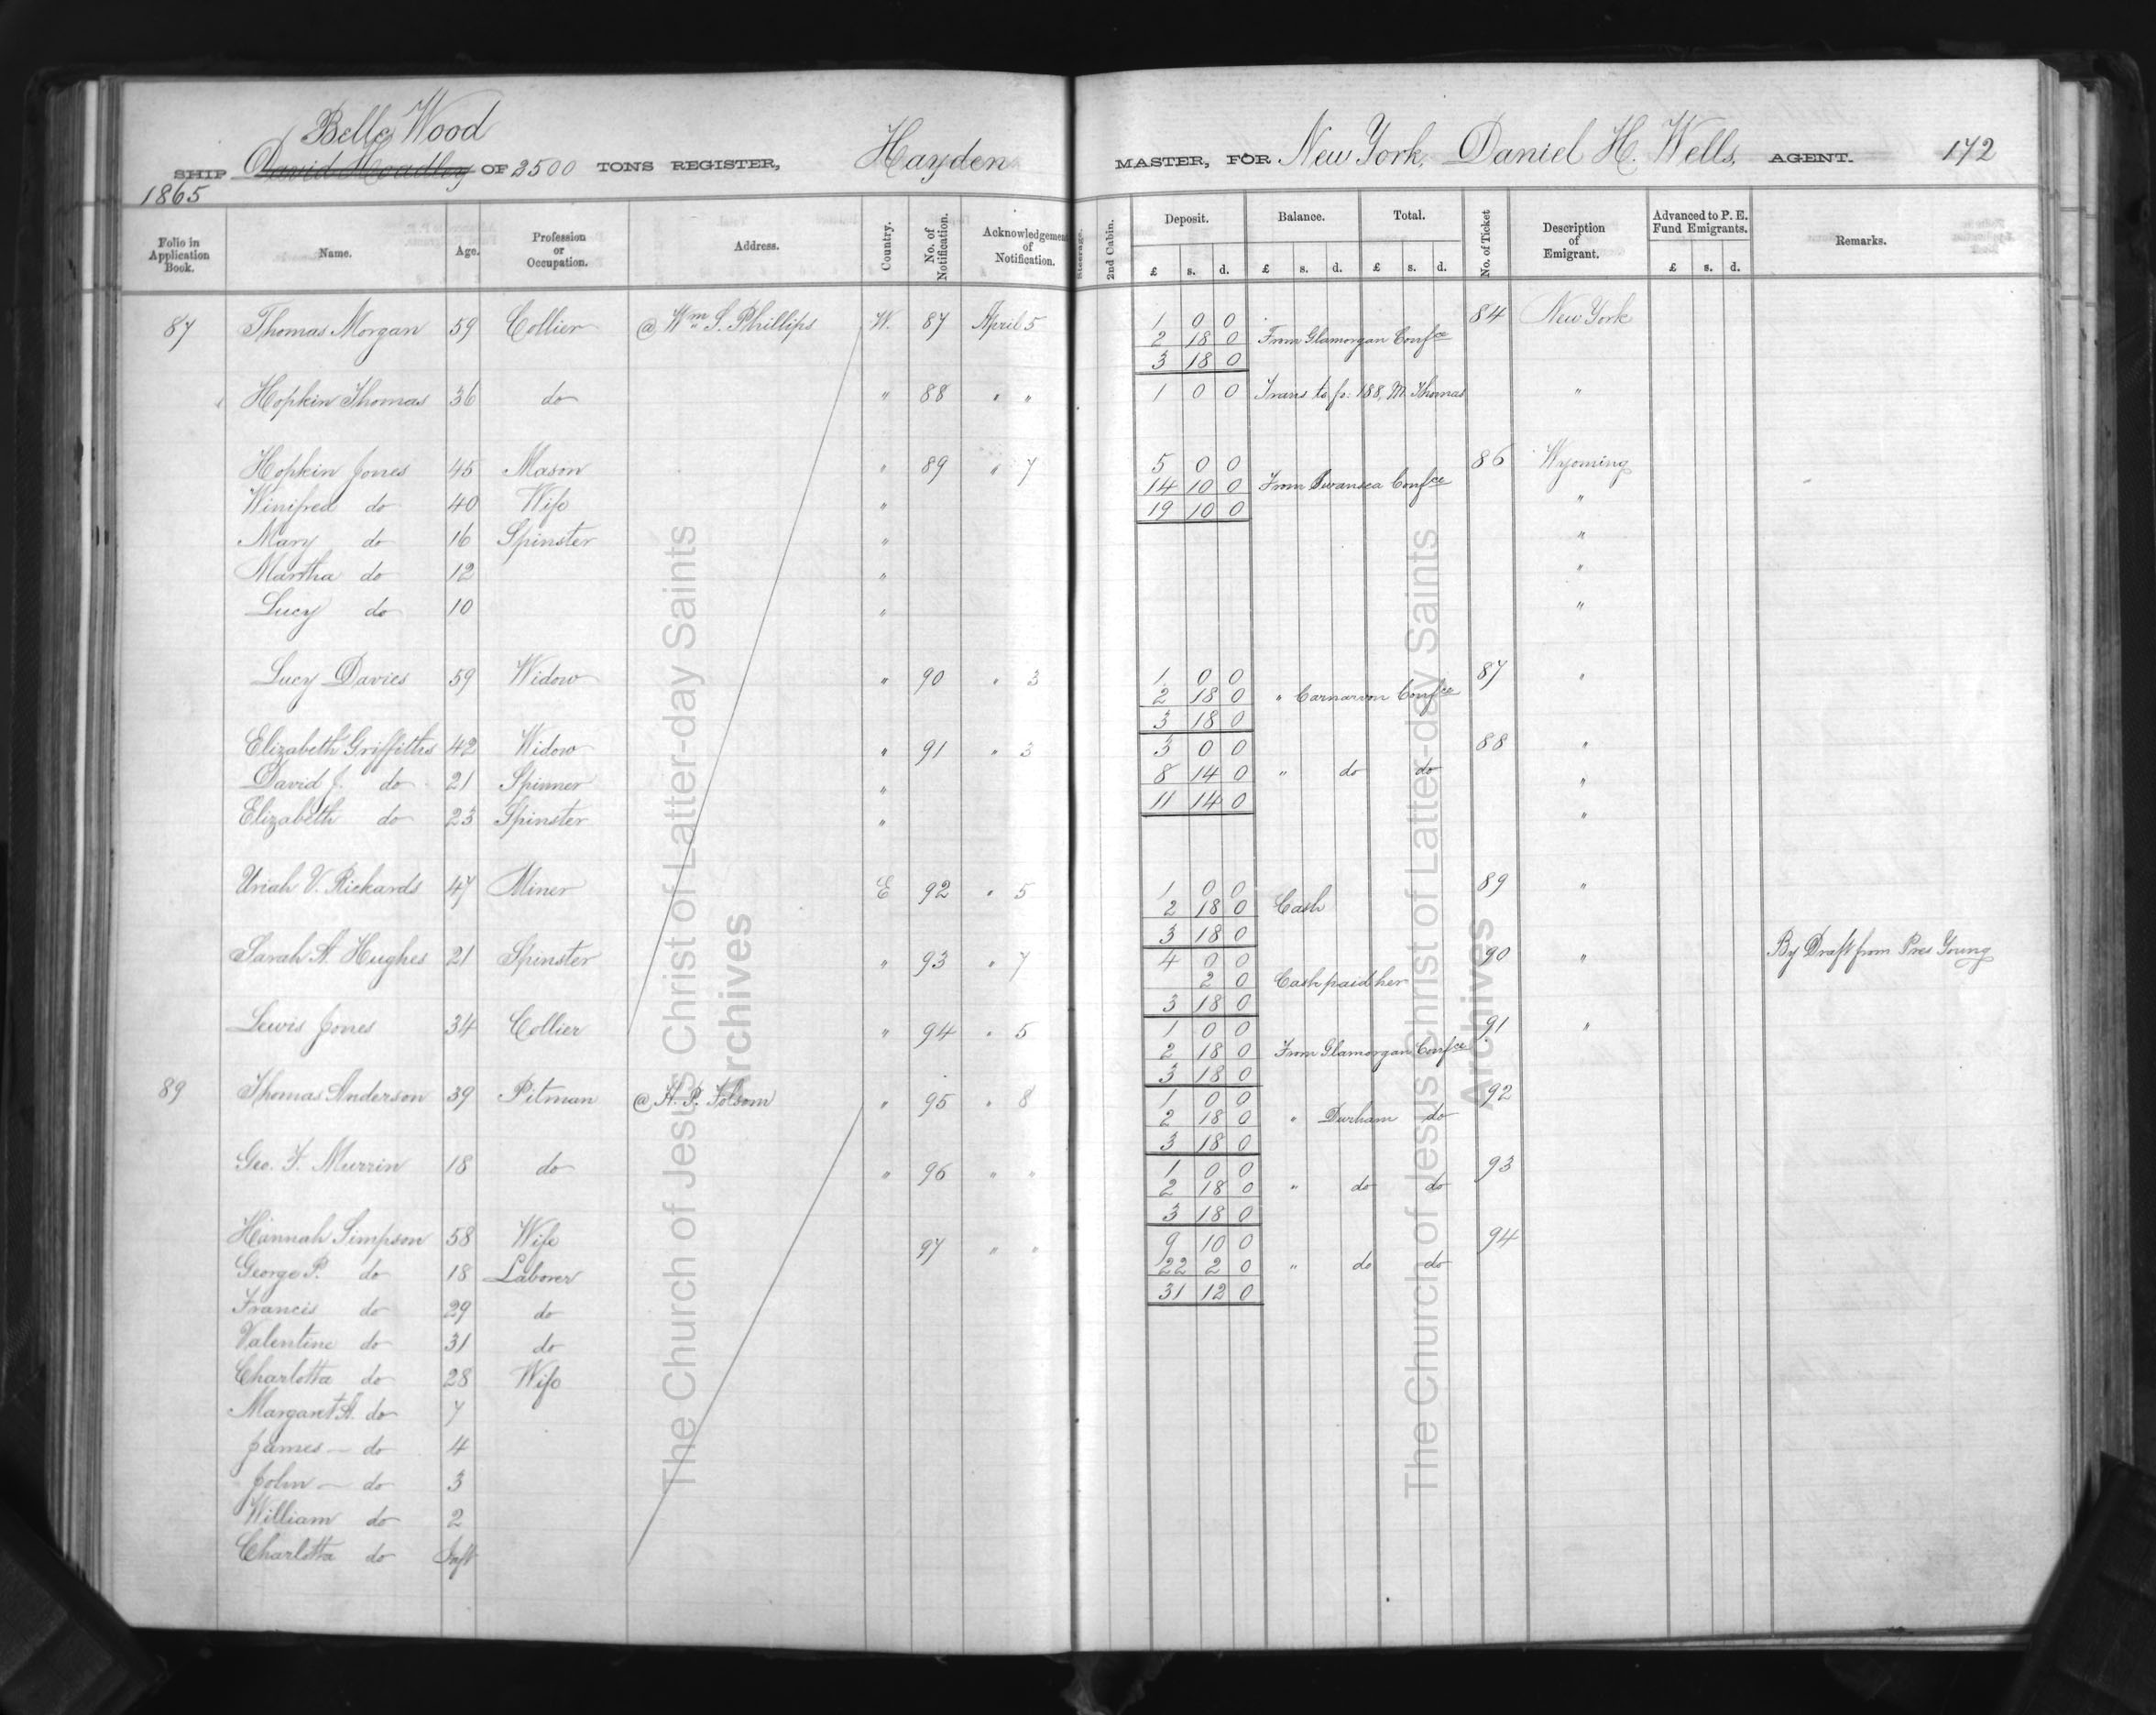 Belle Wood
SHIP David Hoadley OF 2500 TONS REGISTER, Hayden MASTER, FOR New York, Daniel H. Wells, AGENT. 172
1865
Folio in Application Book. Name. Age. Profession or Occupation. Address. Country. No. of Notification. Acknowledgement of Notification. Steerage. 2nd Cabin. Deposit. Balance. Total. No. of Ticket Description of Emigrant. Advanced to P. E. Fund Emigrants. Remarks.
£ s. d. £ s. d. £ s. d. £ s. d.
87 Thomas Morgan 59 Collier @ Wm S. Phillips W. 87 April 5 1 0 0 84 New York
2 18 0 From Glamorgan Confce
3 18 0
Hopkin Thomas 36 do " 88 " " 1 0 0 Trans to fo. 188, M. Thomas "
Hopkin Jones 45 Mason " 89 " 7 5 0 0 86 Wyoming
14 10 0 From Swansea Confce
Winifred do 40 Wife " 19 10 0 "
Mary do 16 Spinster " "
Martha do 12 " "
Lucy do 10 " "
Lucy Davies 59 Widow " 90 " 3 1 0 0 87 "
2 18 0 " Carnarvon Confce
3 18 0
Elizabeth Griffiths 42 Widow " 91 " 3 3 0 0 88 "
David J. do 21 Spinner " 8 14 0 " do do "
Elizabeth do 23 Spinster " 11 14 0 "
Uriah V. Rickards 47 Miner E 92 " 5 1 0 0 89 "
2 18 0 Cash
3 18 0
Sarah A. Hughes 21 Spinster " 93 " 7 4 0 0 90 " By Draft from Pres Young
2 0 Cash paid her
3 18 0
Lewis Jones 34 Collier " 94 " 5 1 0 0 91 "
2 18 0 From Glamorgan Confce
3 18 0
89 Thomas Anderson 39 Pitman @ H. P. Folsom " 95 " 8 1 0 0 92
2 18 0 " Durham do
3 18 0
Geo. F. Murrin 18 do " 96 " " 1 0 0 93
2 18 0 " do do
3 18 0
Hannah Simpson 58 Wife 97 " " 9 10 0 94
George P. do 18 Laborer 22 2 0 " do do
Francis do 29 do 31 12 0
Valentine do 31 do
Charlotta do 28 Wife
Margaret A. do 7
James do 4
John do 3
William do 2
Charlotta do Inft
The Church of Jesus Christ of Latter-day Saints
Archives
The Church of Jesus Christ of Latter-day Saints
Archives